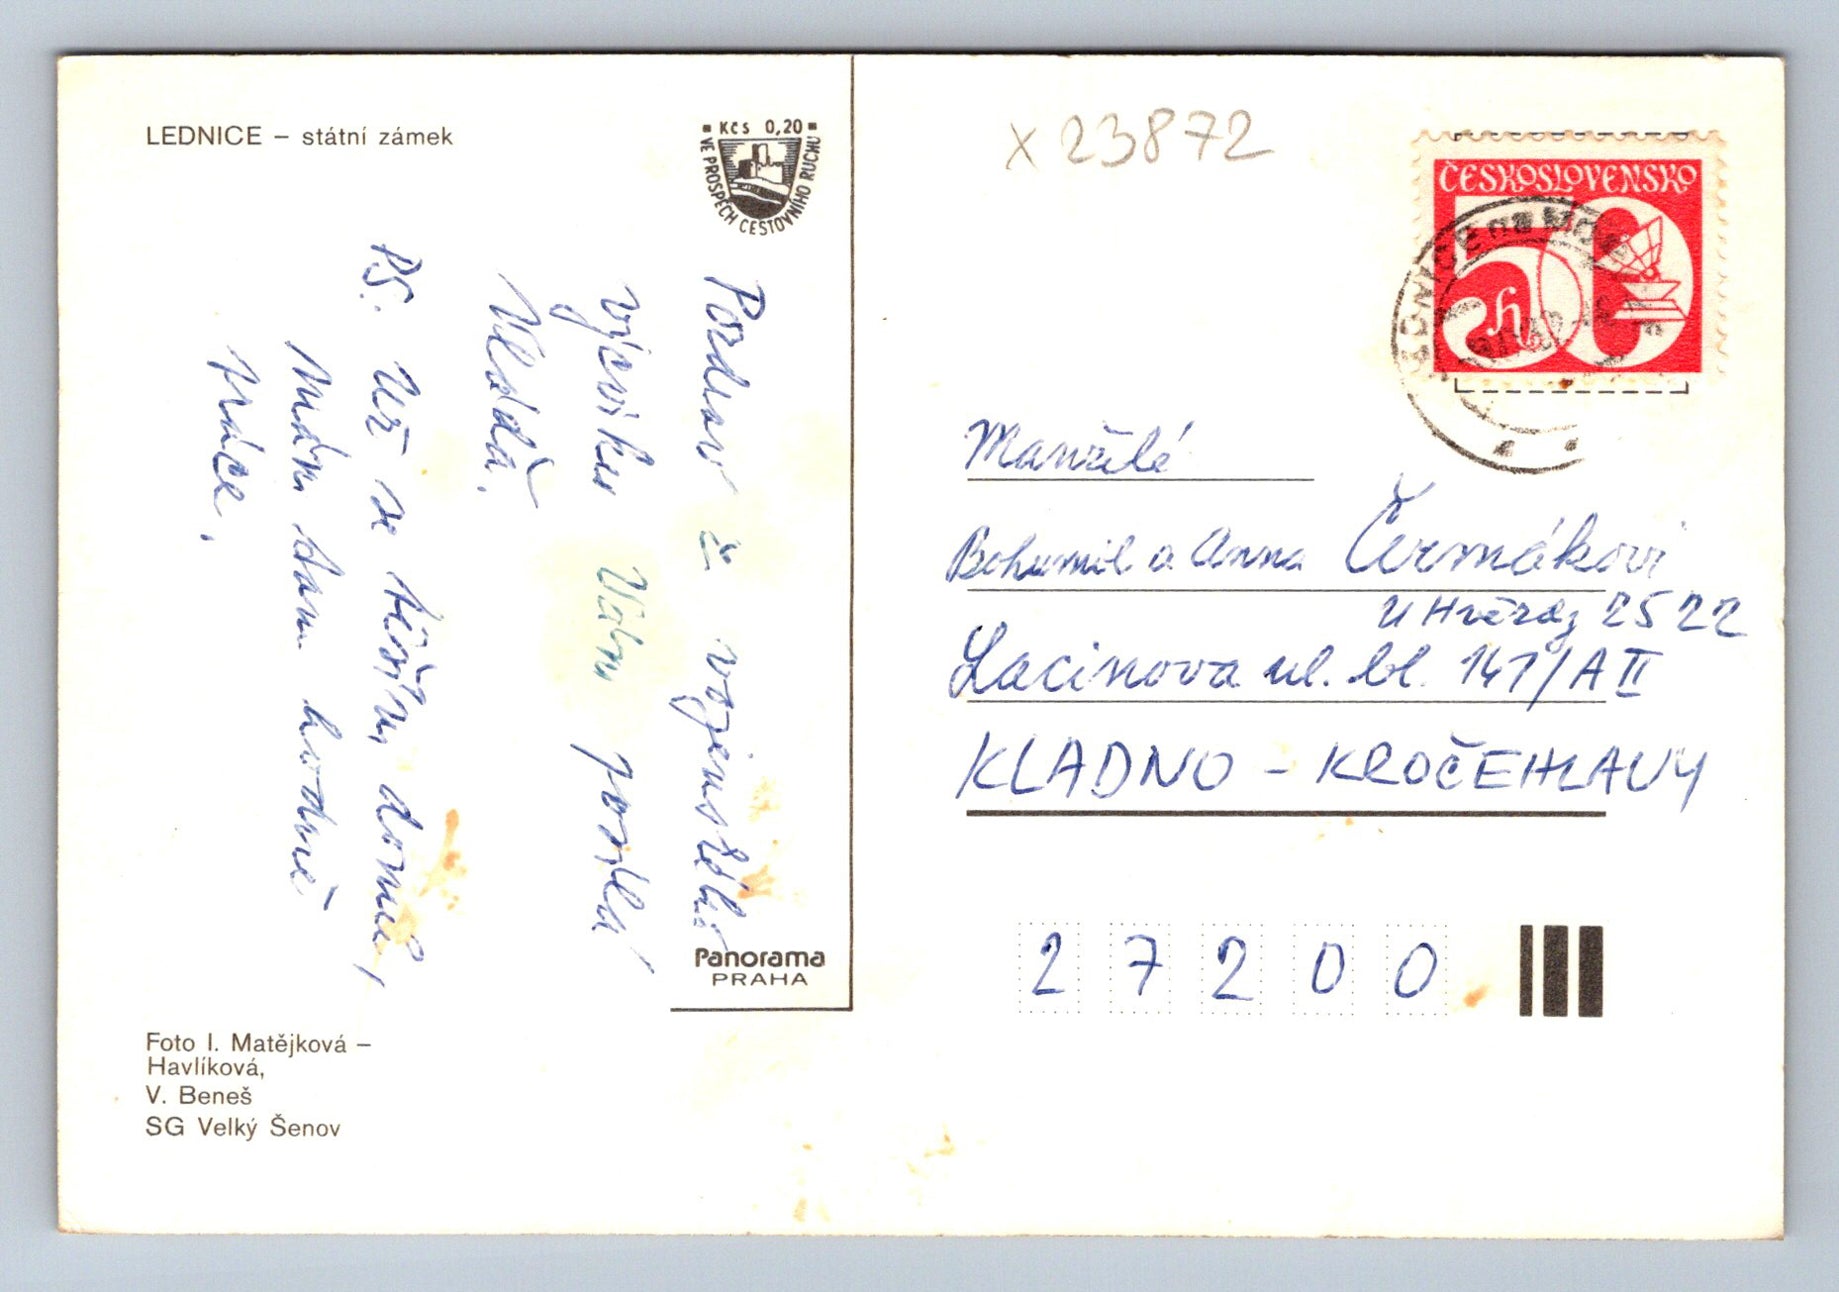 LEDNICE – státní zámek
Kčs 0,20
VE PROSPĚCH CESTOVNÍHO RUCHU
Pozdrav z vojenského
výcviku Vám posílá
Vláďa.
PS. Už se těším domů,
Mám tam hodně
práce.
Panorama
PRAHA
Foto I. Matějková –
Havlíková,
V. Beneš
SG Velký Šenov
x 23872
ČESKOSLOVENSKO
50 h
LEDNICE na Mor
Manželé
Bohumil a Anna Čermákovi
U Hvězdy 2522
Lacinova ul. bl. 147/A II
KLADNO – KROČEHLAVY
27200